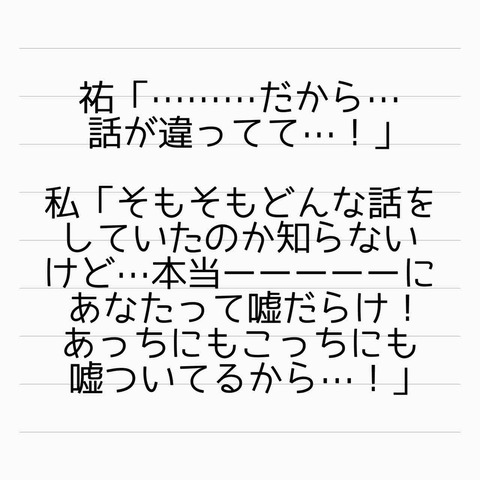 祐「………だから…
話が違ってて…！」
私「そもそもどんな話を
していたのか知らない
けど…本当ーーーーーに
あなたって嘘だらけ！
あっちにもこっちにも
嘘ついてるから…！」